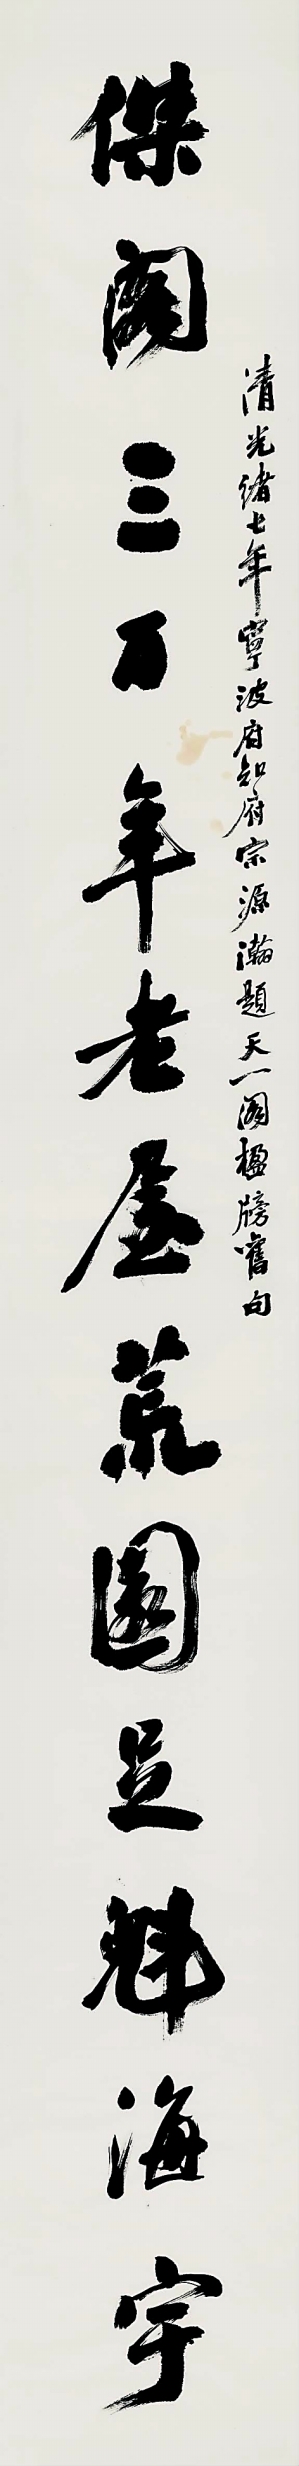 清光緒七年寧波府知府宗源瀚題天一閣楹牓舊句
傑閣三百年老屋荒園足魁海宇